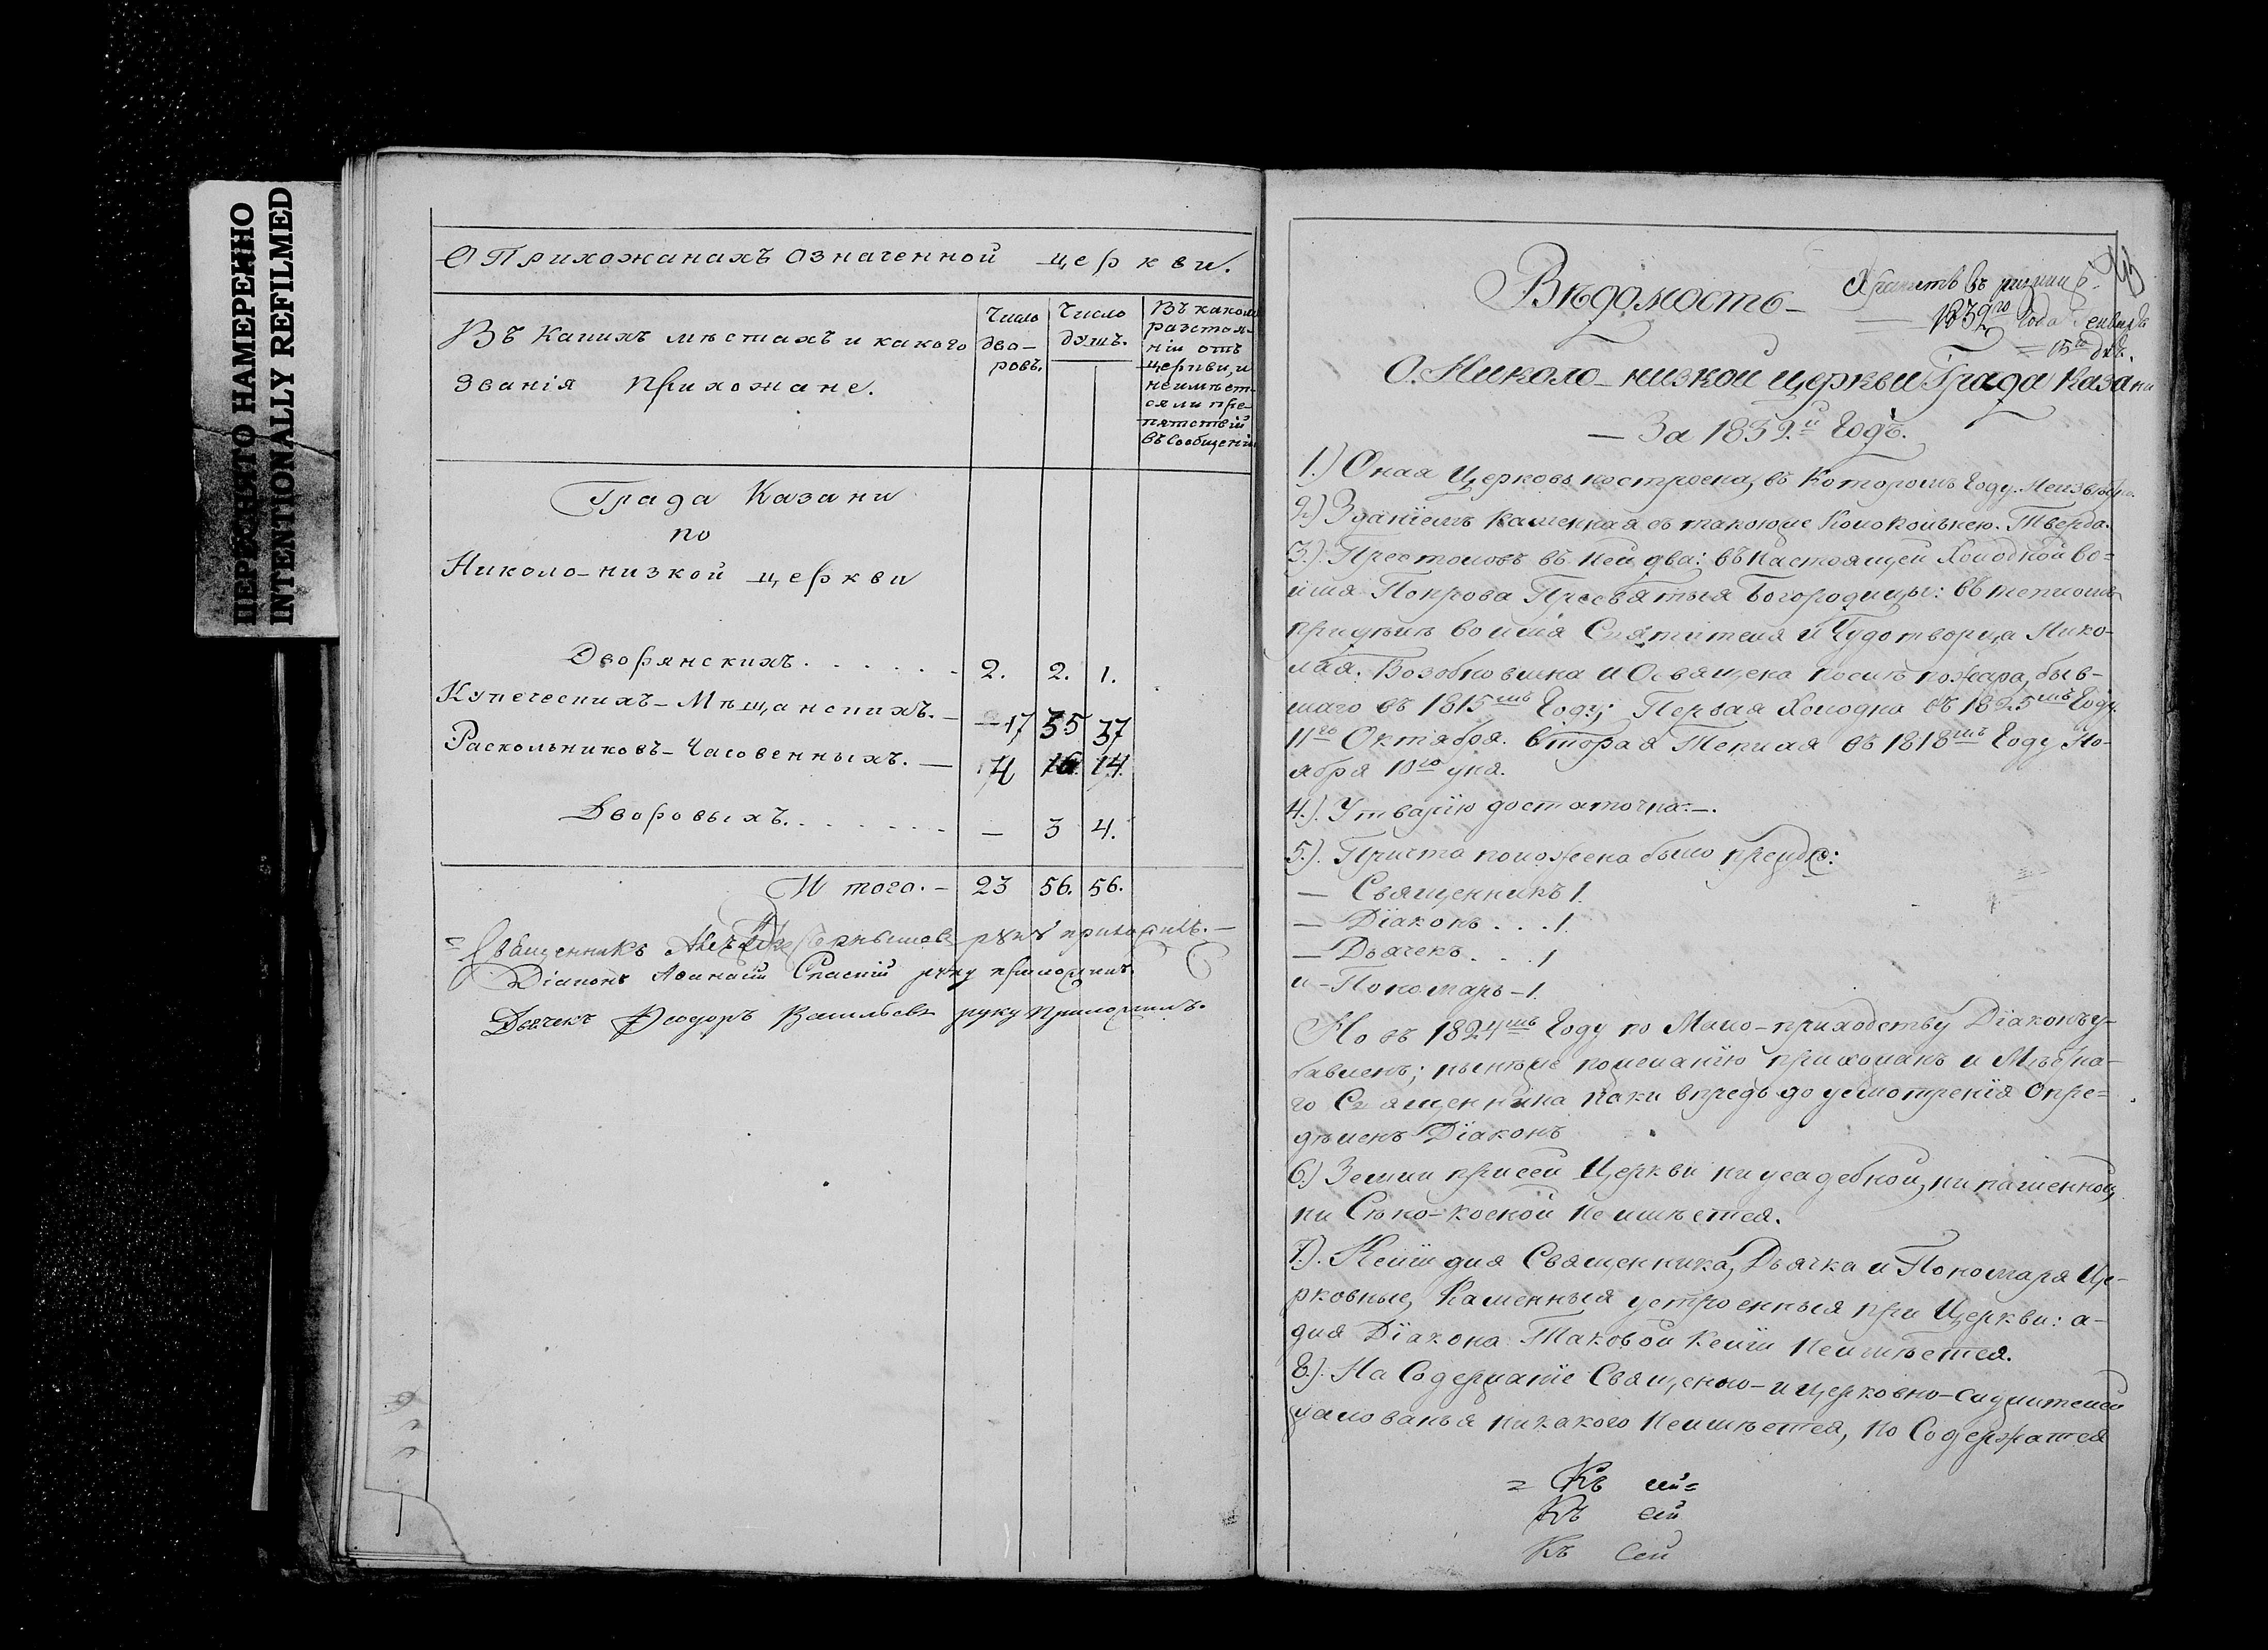 ПЕРЕСНЯТО НАМЕРЕННО
INTENTIONALLY REFILMED
О Прихожанахъ означенной церкви.
Въ Какихъ мѣстахъ и какого
званія прихожане.
Число
дво-
ровъ.
Число
душъ.
Въ каком
разстоя-
ніи отъ
церкви, и
неимѣет-
ся ли пре-
пятствій
въ Сообщеніи
Града Казани
по
Николо-низкой церкви
Дворянскихъ. 2. 2. 1.
Купеческихъ-Мѣщанскихъ. — 17 35 37
Раскольниковъ-Часовенныхъ. — 4 16 14.
Дворовыхъ. — 3 4.
Итого. — 23 56. 56.
Священникъ руку приложилъ. —
Діаконъ Афанасій Спасскій руку приложилъ.
Дьячекъ Феодоръ Васильевъ руку приложилъ.
Вѣдомость —
1839го Года Генваря
15го дня.
О Николо-низкой церкви Града Казани
— За 1832.й Годъ.
1.) Оная Церковь построена, въ Которомъ Году. Неизвѣстно.
2.) Зданіемъ каменная съ такоюже Колокольнею. Тверда.
3.) Престоловъ въ ней два: въ Настоящей Холодной во-
имя Покрова Пресвятыя Богородицы: въ тепломъ
придѣлѣ во имя Святителя и Чудотворца Нико-
лая. Возобновлена и Освящена послѣ пожара, быв-
шаго въ 1815мъ Году; Первая Холодна въ 1825мъ Году
11го Октября. вторая Теплая въ 1818мъ Году Но-
ября 10го дня.
4.) Утварію достаточна. —.
5.) Причта положено было прежде:
— Священникъ 1.
— Діаконъ . . . 1.
— Дьячекъ . . . 1
и — Пономарь — 1.
Но въ 1824мъ Году по Мало-приходству Діаконъ у-
бавленъ; нынѣже пожеланію прихожанъ и Мѣстна-
го Священника паки впредь до усмотренія Опре-
дѣленъ Діаконъ
6.) Земли присей Церкви ни усадебной, ни пашенной,
ни Сѣно-косной Не имѣется.
7.) Келіи для Священника, Дьячка и Пономаря Це-
рковные, Каменныя устроенныя при Церкви: а-
для Діакона Таковой Келіи Неимѣется.
8.) На Содержаніе Священно- и церковно-служителей
жалованья никакого Неимѣется, но Содержатся
= Къ сей =
Къ сей
Къ Сей